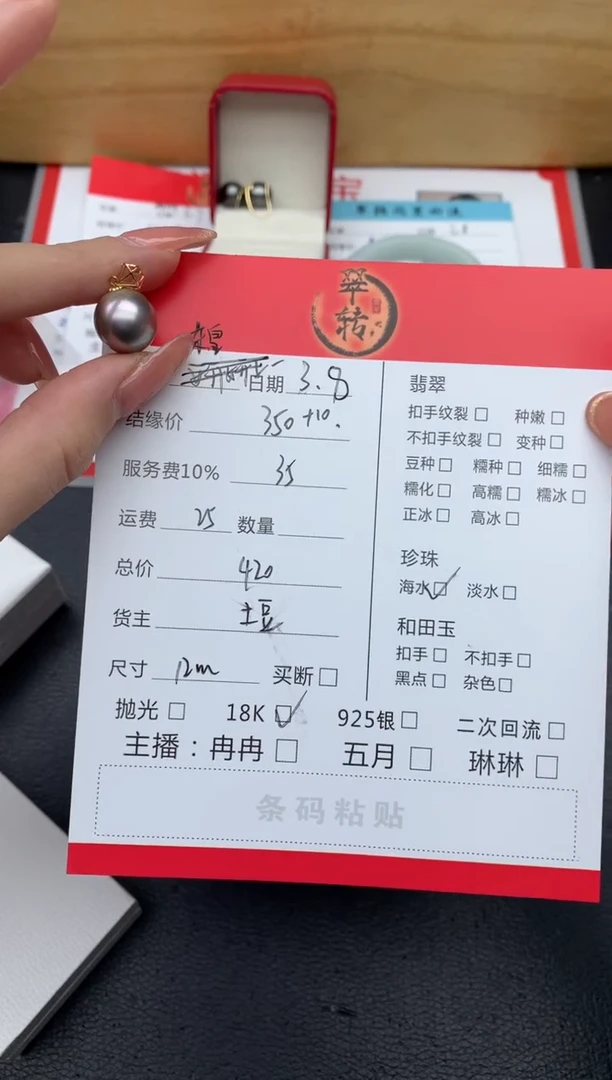 翠
转
日期 3.8
结缘价 350+10.
服务费10% 35
运费 25 数量
总价 420
货主 土豆
尺寸 12m 买断□
翡翠
扣手纹裂□ 种嫩□
不扣手纹裂□ 变种□
豆种□ 糯种□ 细糯□
糯化□ 高糯□ 糯冰□
正冰□ 高冰□
珍珠
海水☑ 淡水□
和田玉
扣手□ 不扣手□
黑点□ 杂色□
抛光□ 18K☑ 925银□ 二次回流□
主播：冉冉□ 五月□ 琳琳□
条码粘贴